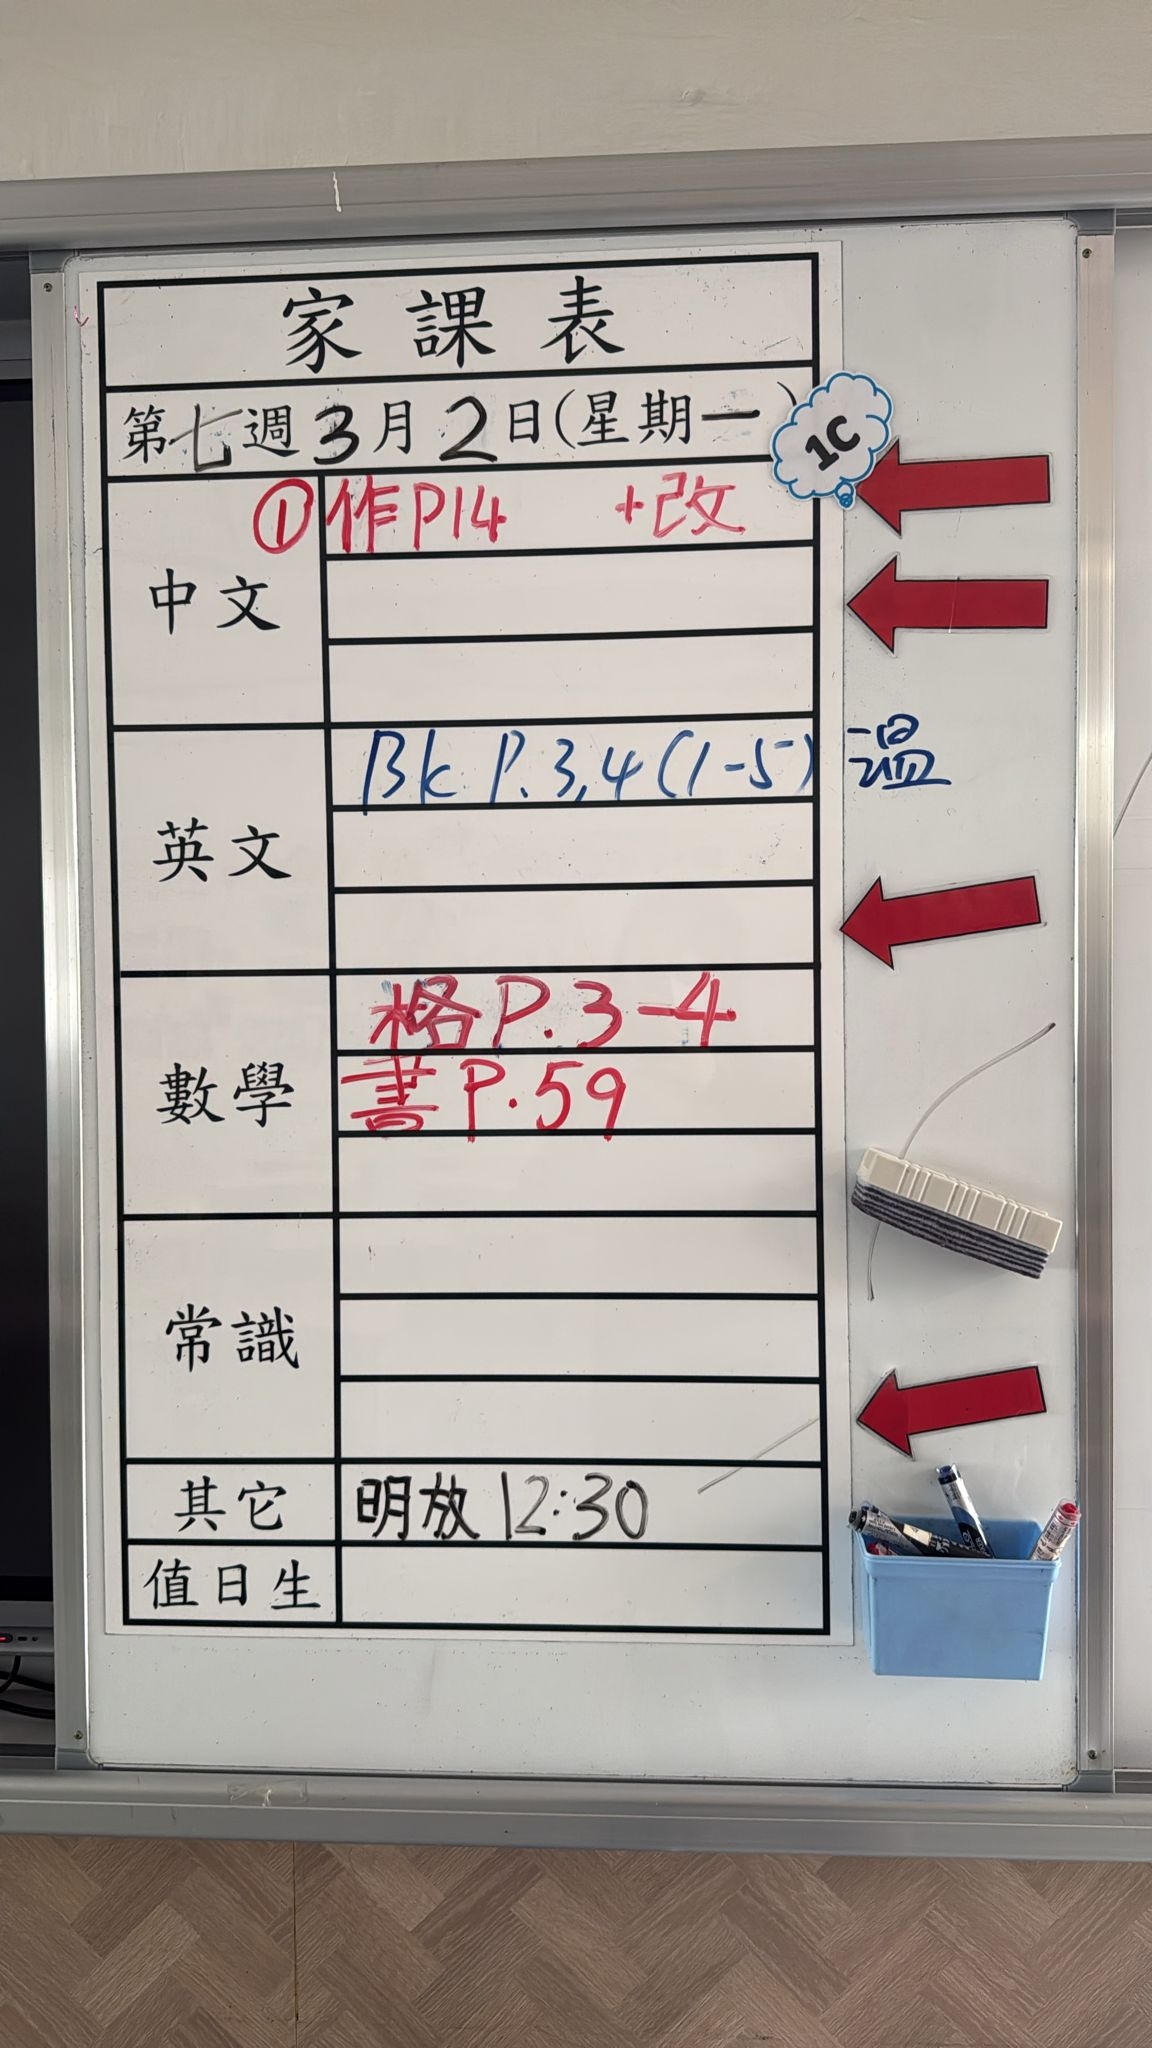 家課表
第七週3月2日(星期一)
1C
中文
①作P14 +改
英文
Bk P.3,4(1-5) 温
數學
格P.3-4
書P.59
常識
其它
明放12:30
值日生